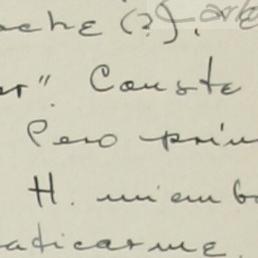 oche (?).
er". Conste
Pero prin
H. miemb
adicarme.